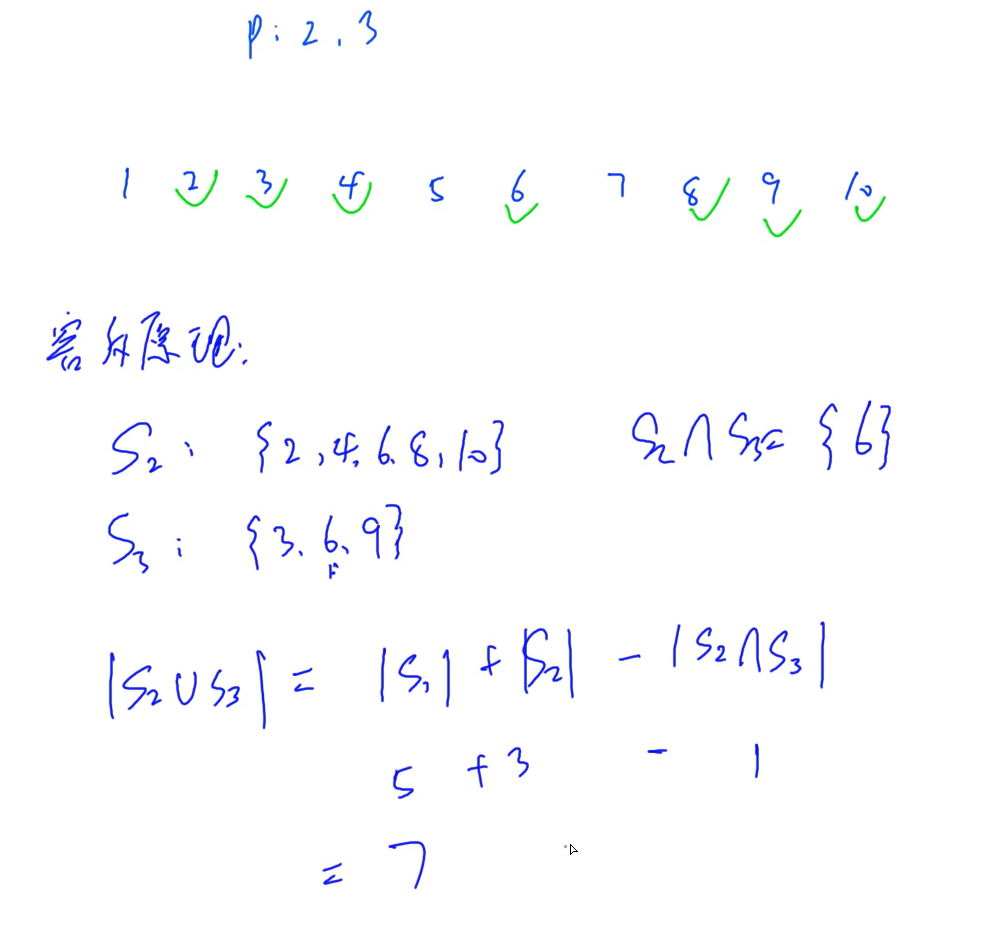 p: 2, 3
1 2 3 4 5 6 7 8 9 10
容斥原理:
S₂: {2,4,6,8,10} S₂∩S₃= {6}
S₃: {3,6,9}
|S₂∪S₃| = |S₁| + |S₂| - |S₂∩S₃|
5 + 3 - 1
= 7